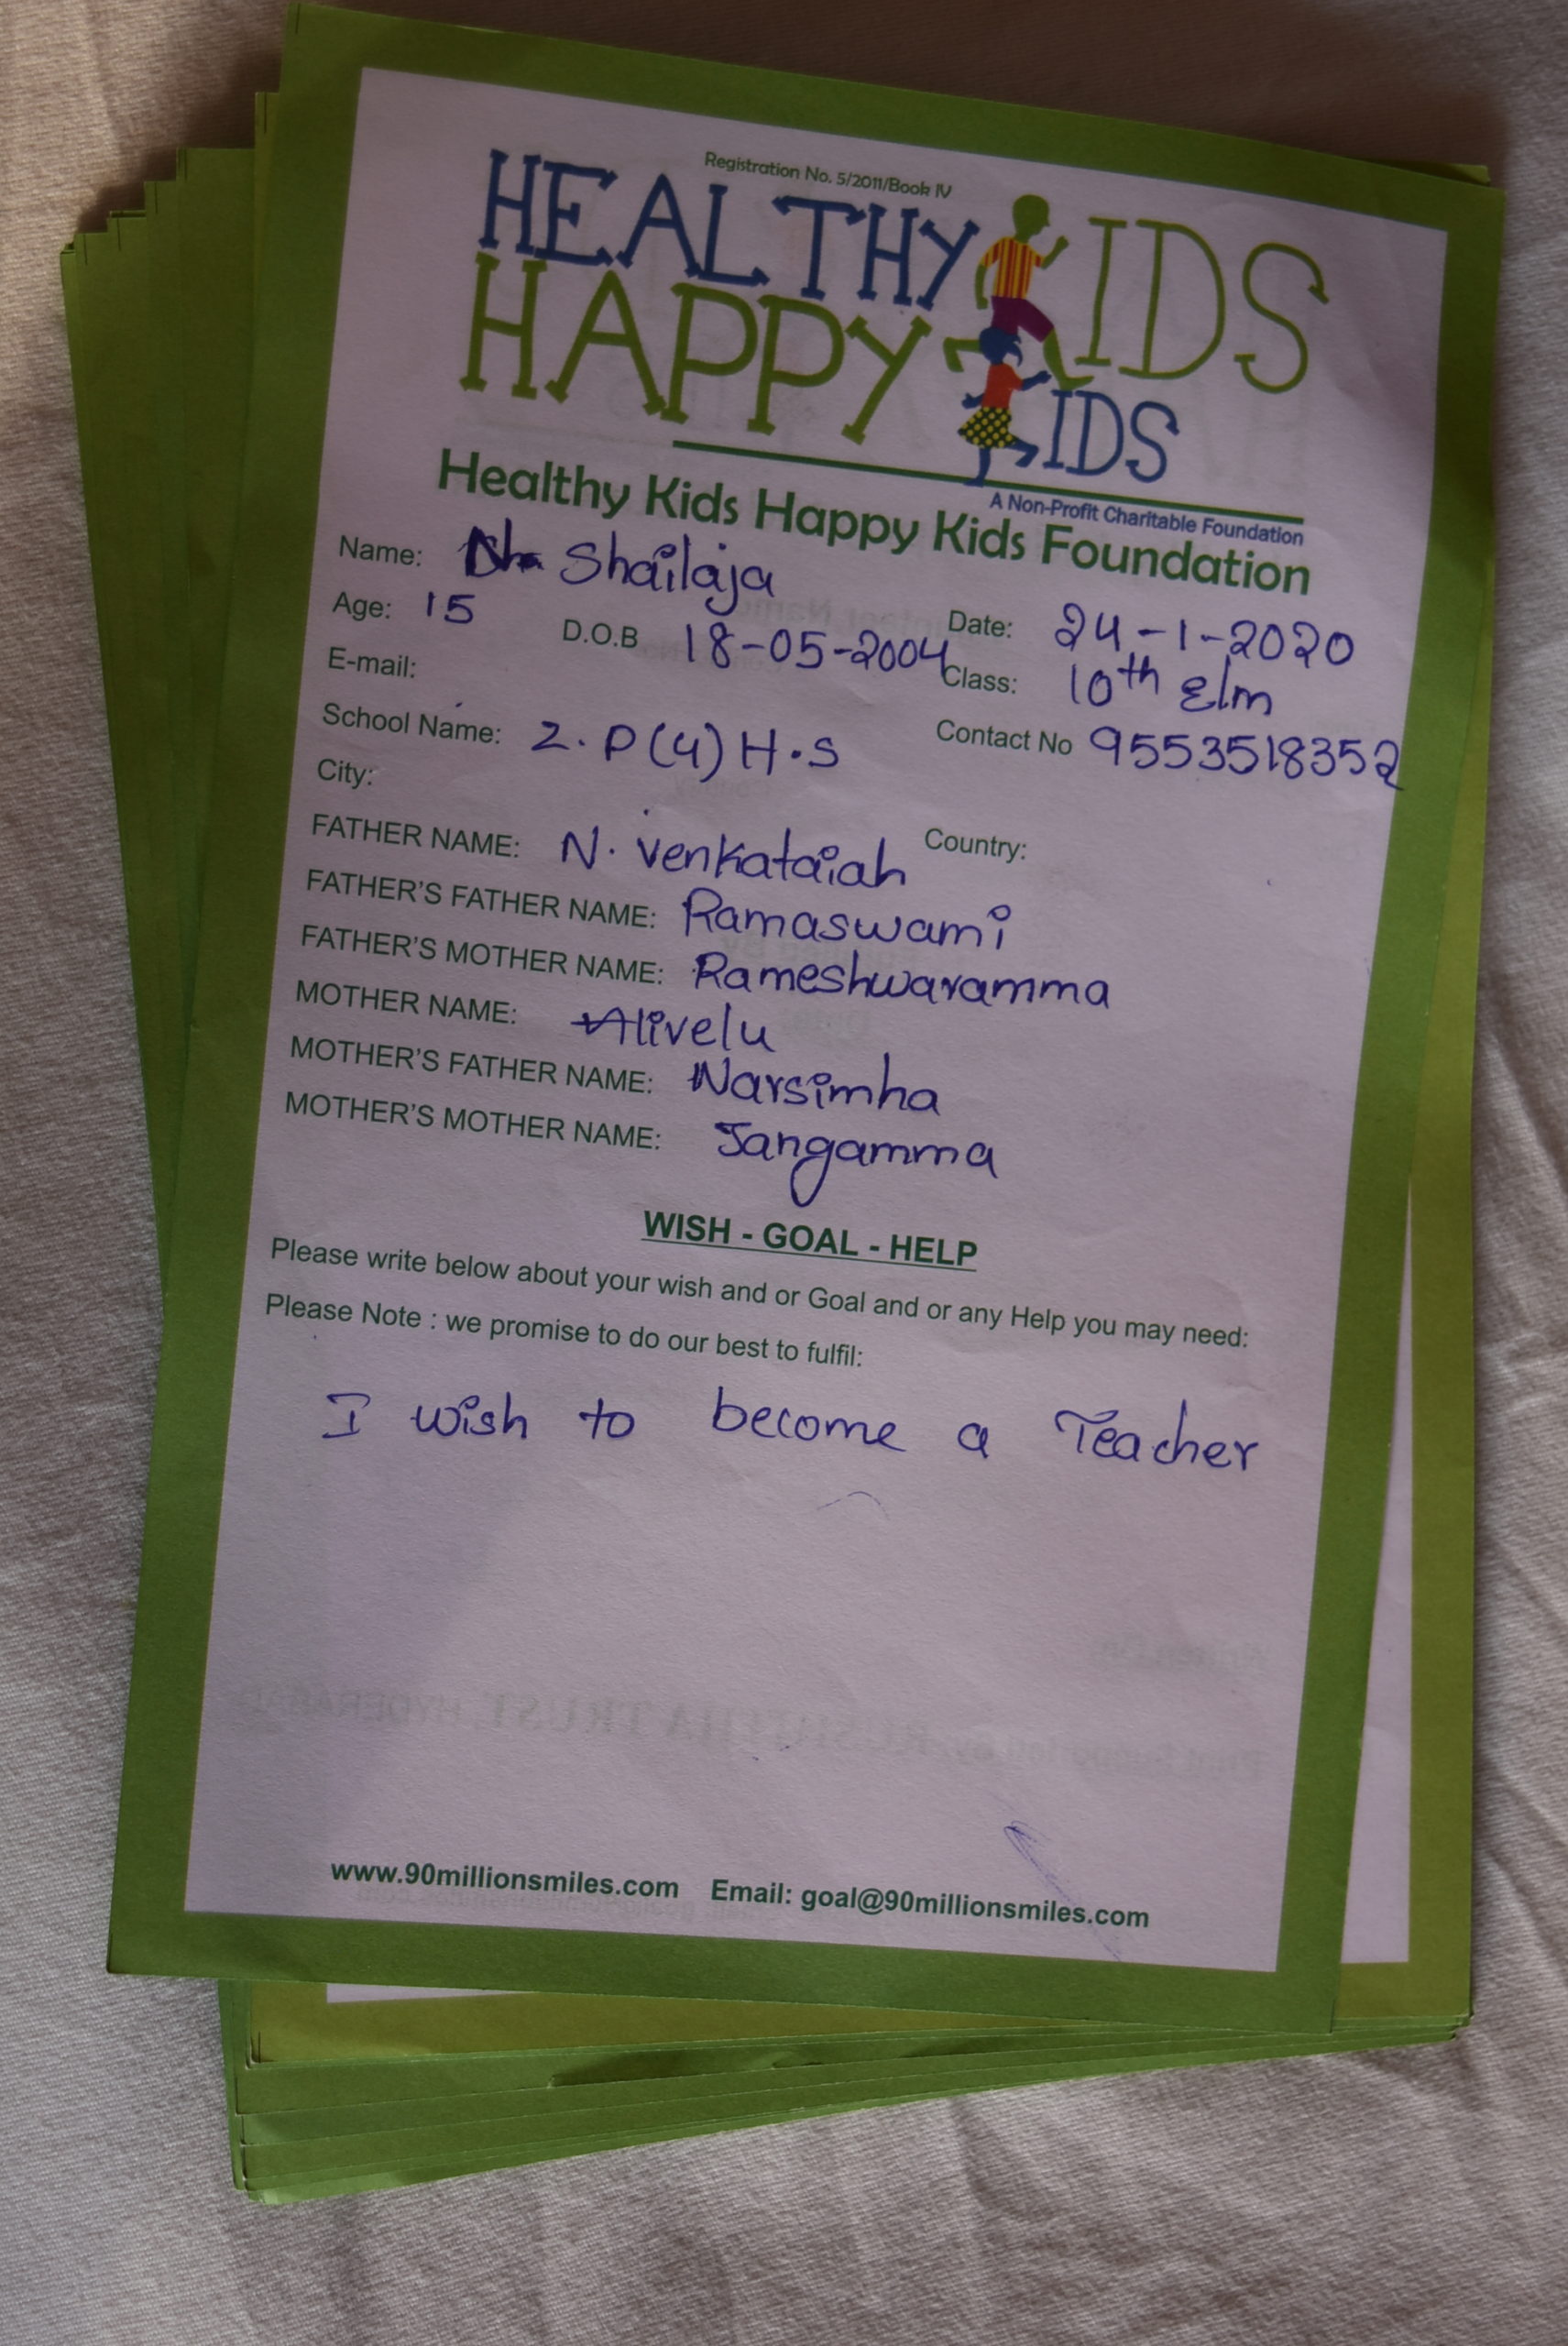 Registration No. 5/2011/Book IV
HEALTHY KIDS
HAPPY KIDS
A Non-Profit Charitable Foundation
Healthy Kids Happy Kids Foundation
Name: Shailaja
Date: 24-1-2020
Age: 15 D.O.B 18-05-2004 Class: 10th Elm
E-mail:
Contact No 9553518352
School Name: Z. P(4) H.S
City:
Country:
FATHER NAME: N. Venkataiah
FATHER'S FATHER NAME: Ramaswami
FATHER'S MOTHER NAME: Rameshwaramma
MOTHER NAME: Alivelu
MOTHER'S FATHER NAME: Narsimha
MOTHER'S MOTHER NAME: Jangamma
WISH - GOAL - HELP
Please write below about your wish and or Goal and or any Help you may need:
Please Note : we promise to do our best to fulfil:
I wish to become a Teacher
www.90millionsmiles.com Email: goal@90millionsmiles.com